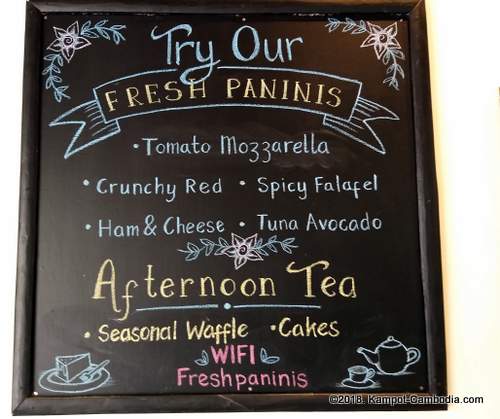 Try Our
FRESH PANINIS
• Tomato Mozzarella
• Crunchy Red • Spicy Falafel
• Ham & Cheese • Tuna Avocado
Afternoon Tea
• Seasonal Waffle • Cakes
WIFI
Freshpaninis
©2018. Kampot-Cambodia.com